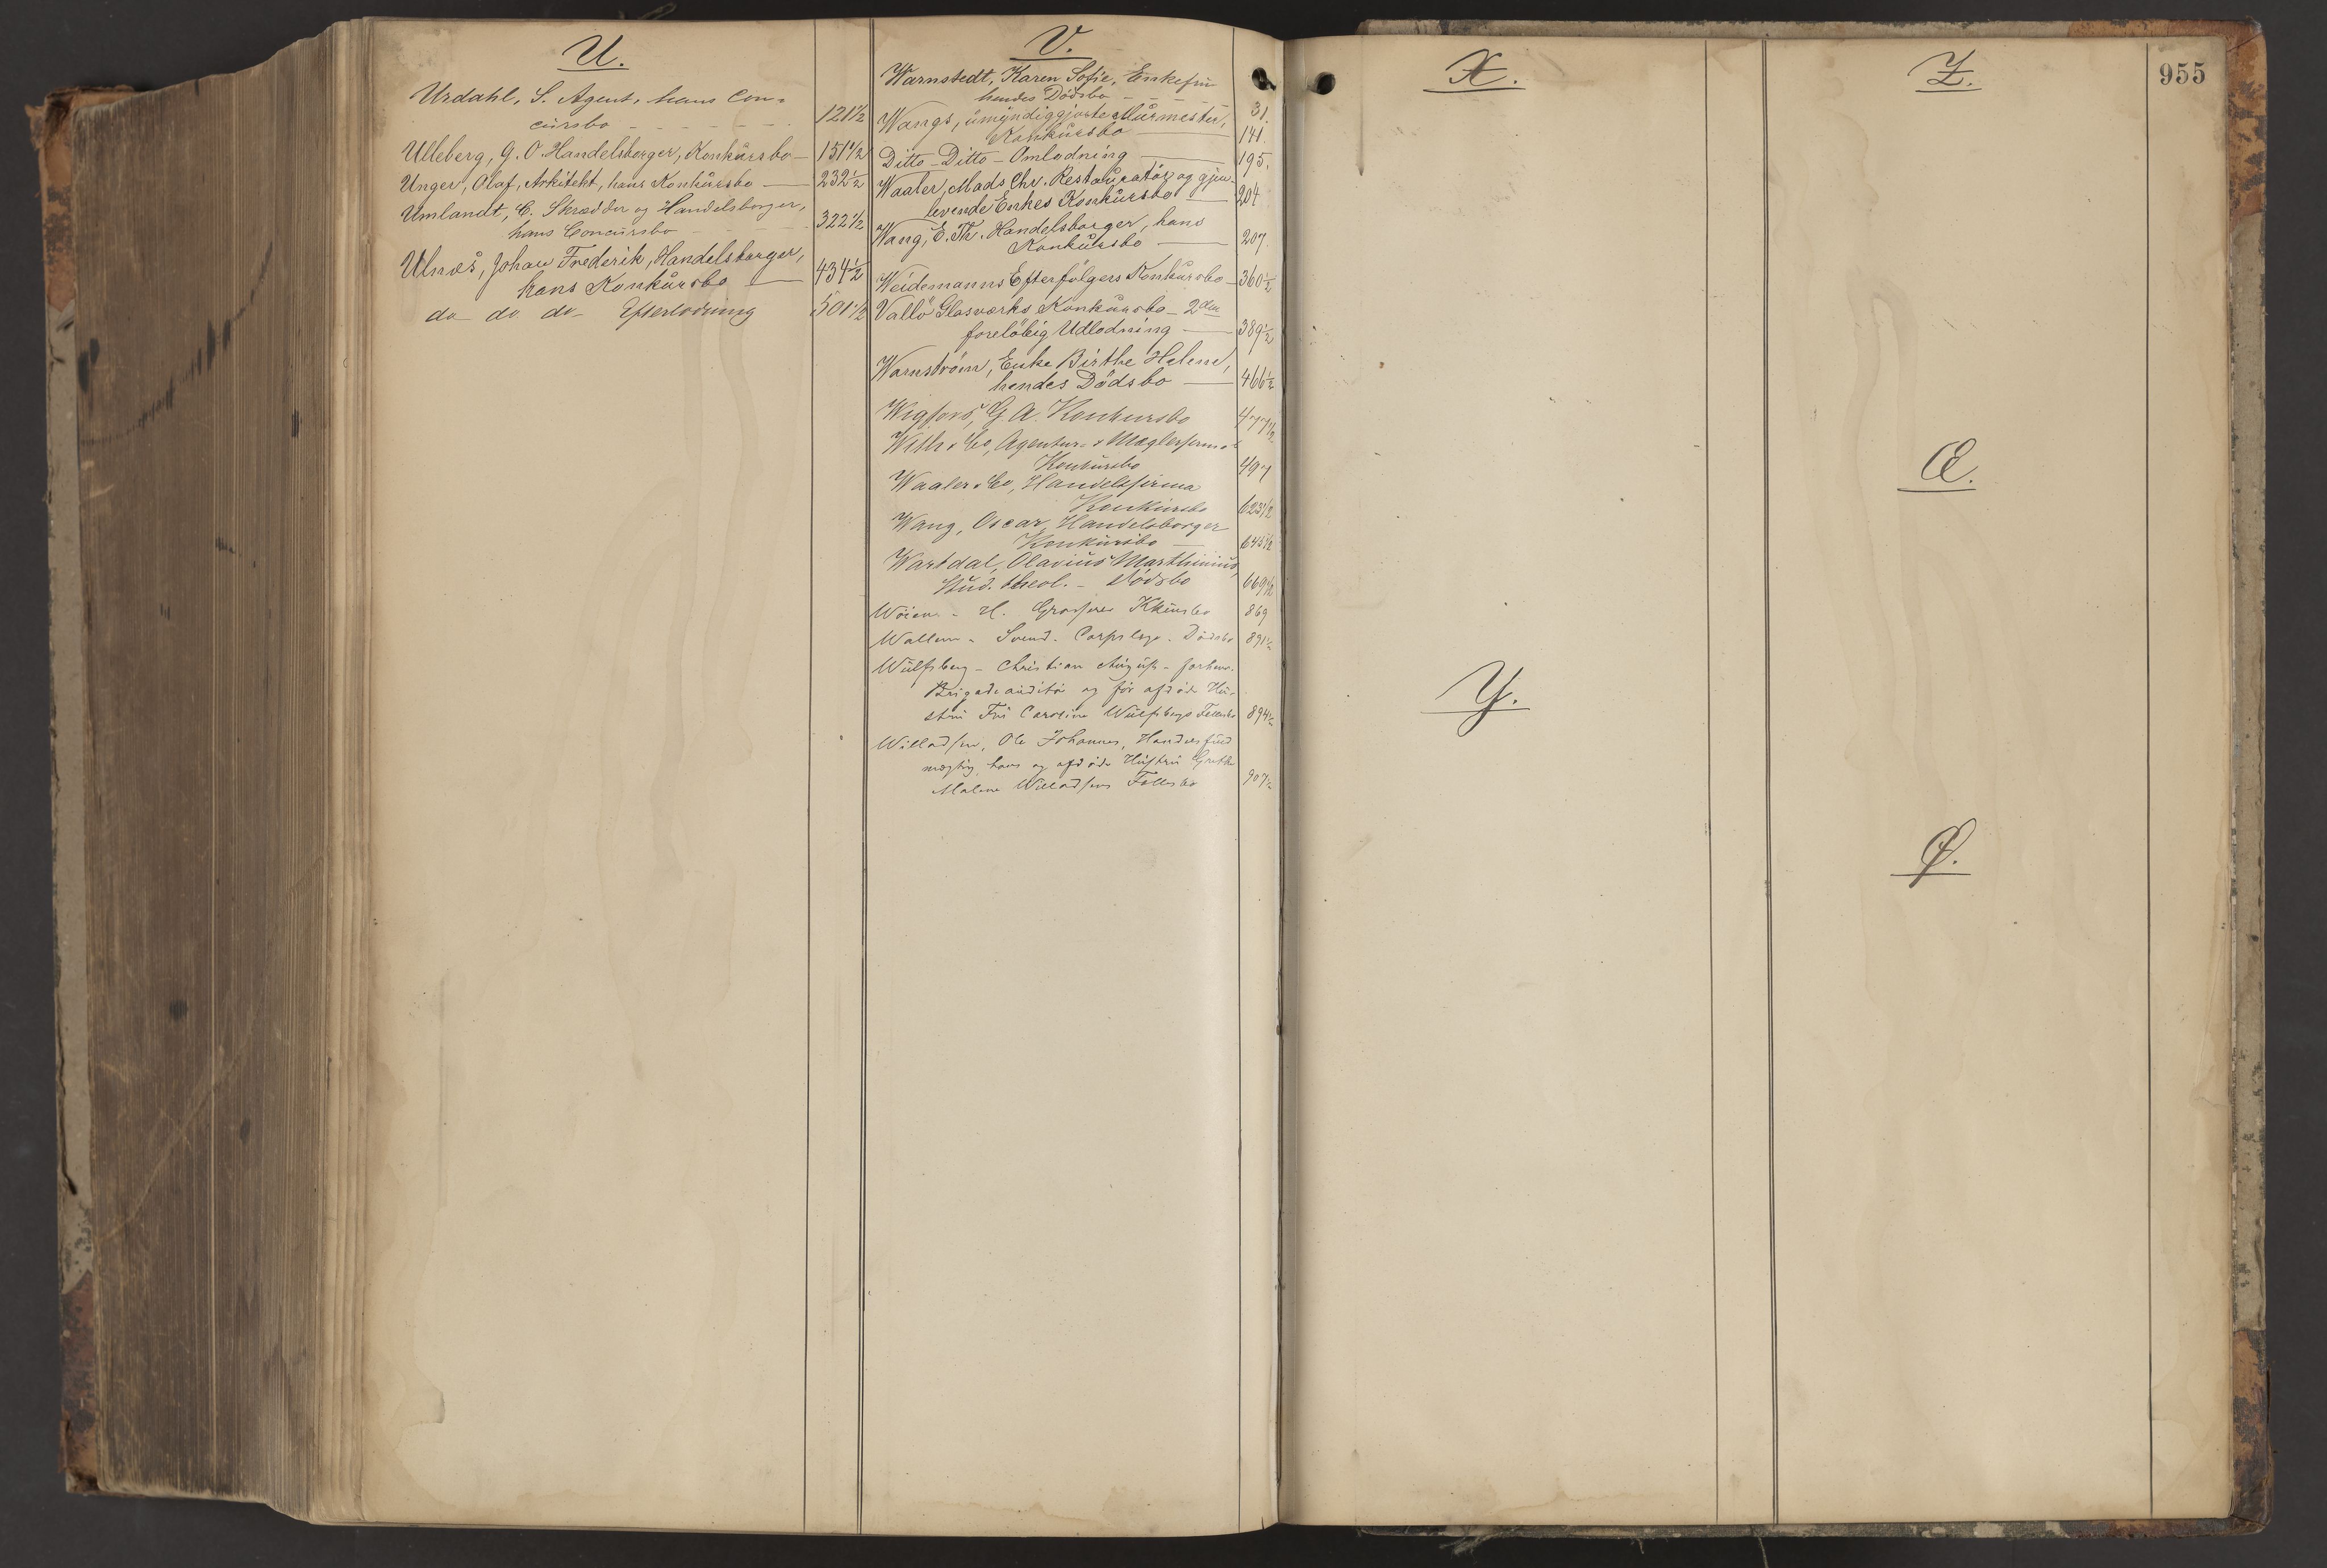 U.
Urdahl, S. Agent, hans Con-
cursbo - - - - - - - 121 1/2
Ulleberg, G. O. Handelsborger, Konkursbo - 151 1/2
Unger, Olaf, Arkitekt, hans Konkursbo — 232 1/2
Umlandt, C. Skrædder og Handelsborger,
hans Concursbo - - - - - 322 1/2
Ulnæs, Johan Frederik, Handelsborger,
hans Konkursbo — 434 1/2
do do do - Efterlodning 501 1/2
V.
Warnstedt, Karen Sofie, Enkefru
hendes Dödsbo - - - - - 31.
Wangs, umyndiggjorte Murmester,
Konkursbo — 141.
Ditto - Ditto - Omlodning — 195.
Waaler, Mads Chr. Restauratör og gjen-
levende Enkes Konkursbo — 204
Wang, E. Th. Handelsborger, hans
Konkursbo — 207.
Weidemanns Efterfölgers Konkursbo - 360 1/2
Vallö Glasværks Konkursbo - 2den
forelöbig Udlodning — 389 1/2
Warnström, Enke Birthe Helene,
hendes Dödsbo — 466 1/2
Wigfors, G. A. Konkursbo 477 1/2
With & Co, Agentur- & Mæglerfirma
Konkursbo 497
Waaler & Co, Handelsfirma
Konkursbo 623 1/2
Wang, Oscar, Handelsborger
Konkursbo — 645 1/2
Wartdal, Olavius Marthinius,
Stud. theol. - Dödsbo 669 1/2
Wöien - H. Grosserer Kkursbo 869
Wallem - Svend - Corpslæge - Dödsbo 891 1/2
Wulfsberg - Christian August - forhenv.
Brigadeauditör og för afdöde Hu-
stru Fru Caroline Wulfsbergs Fellesbo 894 1/2
Willadsen, Ole Johannes, Handelsfuld
mægtig, hans og afdöde Hustru Grethe
Malene Willadsens Fellesbo 907 1/2
X.
Y.
Z.
955
Æ.
Ø.